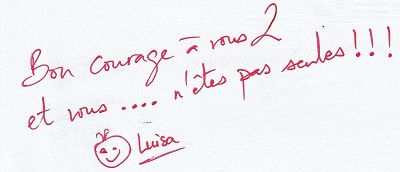 Bon courage à vous 2
et vous .... n'êtes pas seules !!!
Luisa